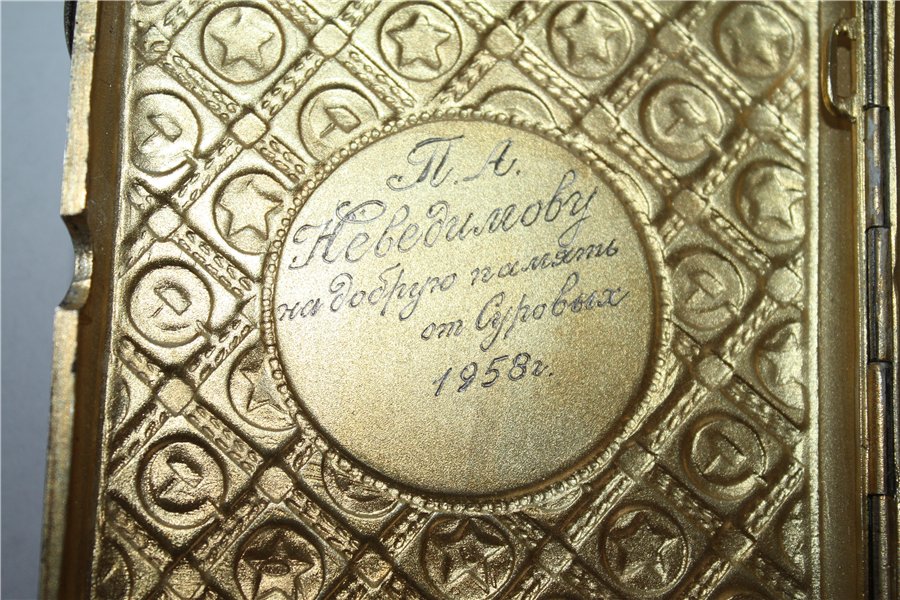 П. А.
Неведимову
на добрую память
от Суровых
1958г.